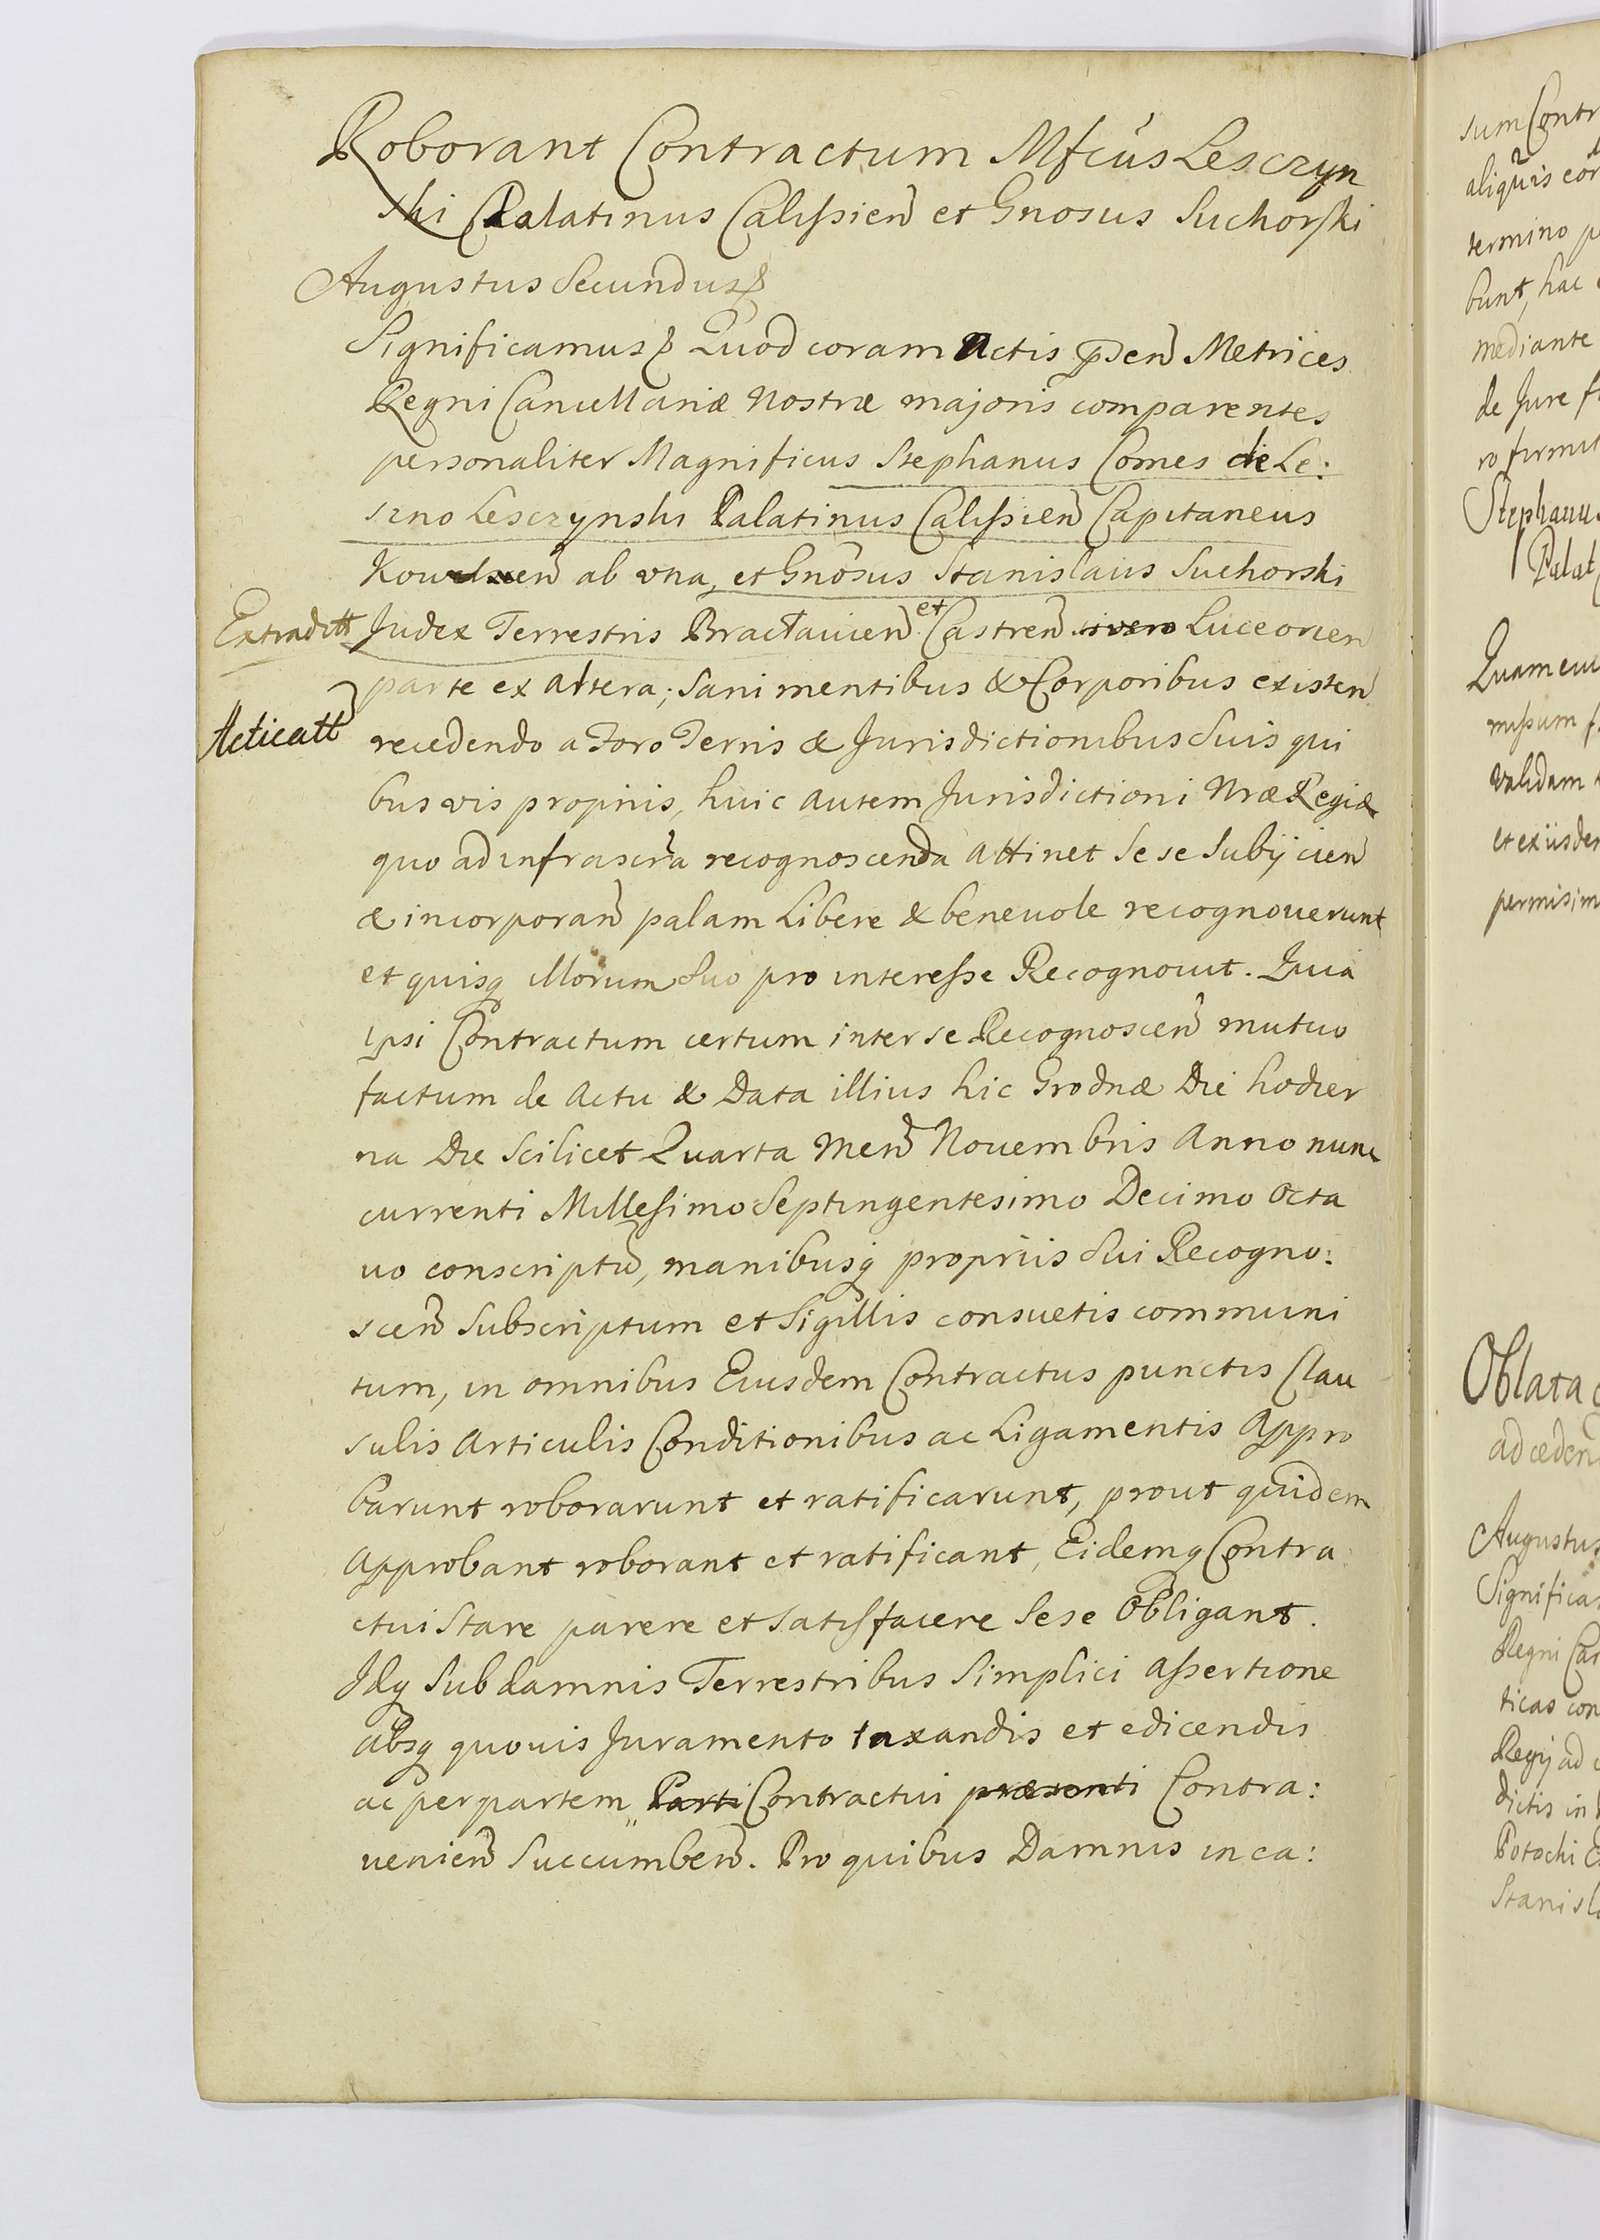 Roborant Contractum Mfcus Lesczyn
ski Palatinus Calissien et Gnosus Suchorski
Augustus Secundus
Significamus Quod coram Actis pden Metrices
Regni Cancellariæ Nostræ majoris comparentes
personaliter Magnificus Stephanus Comes de Le:
szno Lesczynski Palatinus Calissien Capitaneus
Kowelien ab una, et Gnosus Stanislaus Suchorski
Extraditt
Judex Terrestris Bractavien et Castren Luceorien
parte ex altera; sani mentibus & Corporibus existen
Acticatt
recedendo a Foro Terris & Jurisdictionibus Suis qui
bus vis propriis, huic autem Jurisdictioni Nræ Regiæ
quo ad infrascra recognoscenda Attinet Se se Subijcien
& incorporan palam Libere & beneuole recognouerunt
et quisq illorum Suo pro interesse Recognouit. Quia
ipsi Contractum certum inter se Recognoscen mutuo
factum de Actu & Data illius hic Grodnæ Die hodier
na Die Scilicet Quarta Men Nouembris Anno nunc
currenti Millesimo Septingentesimo Decimo Octa
uo conscriptu, manibusq propriis Sui Recogno:
scen Subscriptum et Sigillis consuetis communi
tum, in omnibus Eiusdem Contractus punctis Clau
sulis Articulis Conditionibus ac Ligamentis Appro
barunt roborarunt et ratificarunt, prout quidem
Approbant roborant et ratificant, Eidemq Contra
ctui Stare parere et satisfacere Sese Obligant.
Idq Sub damnis Terrestribus Simplici Assertione
Absq quouis Juramento taxandis et edicendis
ac per partem Parti Contractui præsenti Contra:
uenien Succumben. Pro quibus Damnis in ca:
sum Contr
aliquis
termino
bunt, hac
mediante
de Jure
ro firmit
Stephanus
Palat
Quam
missum
validam
et exiisdem
permisim
Oblata
ad ceden
Augustus
Significa
Regni Ca
ticas con
Regij ad
dictis in
Potocki
Stanisl